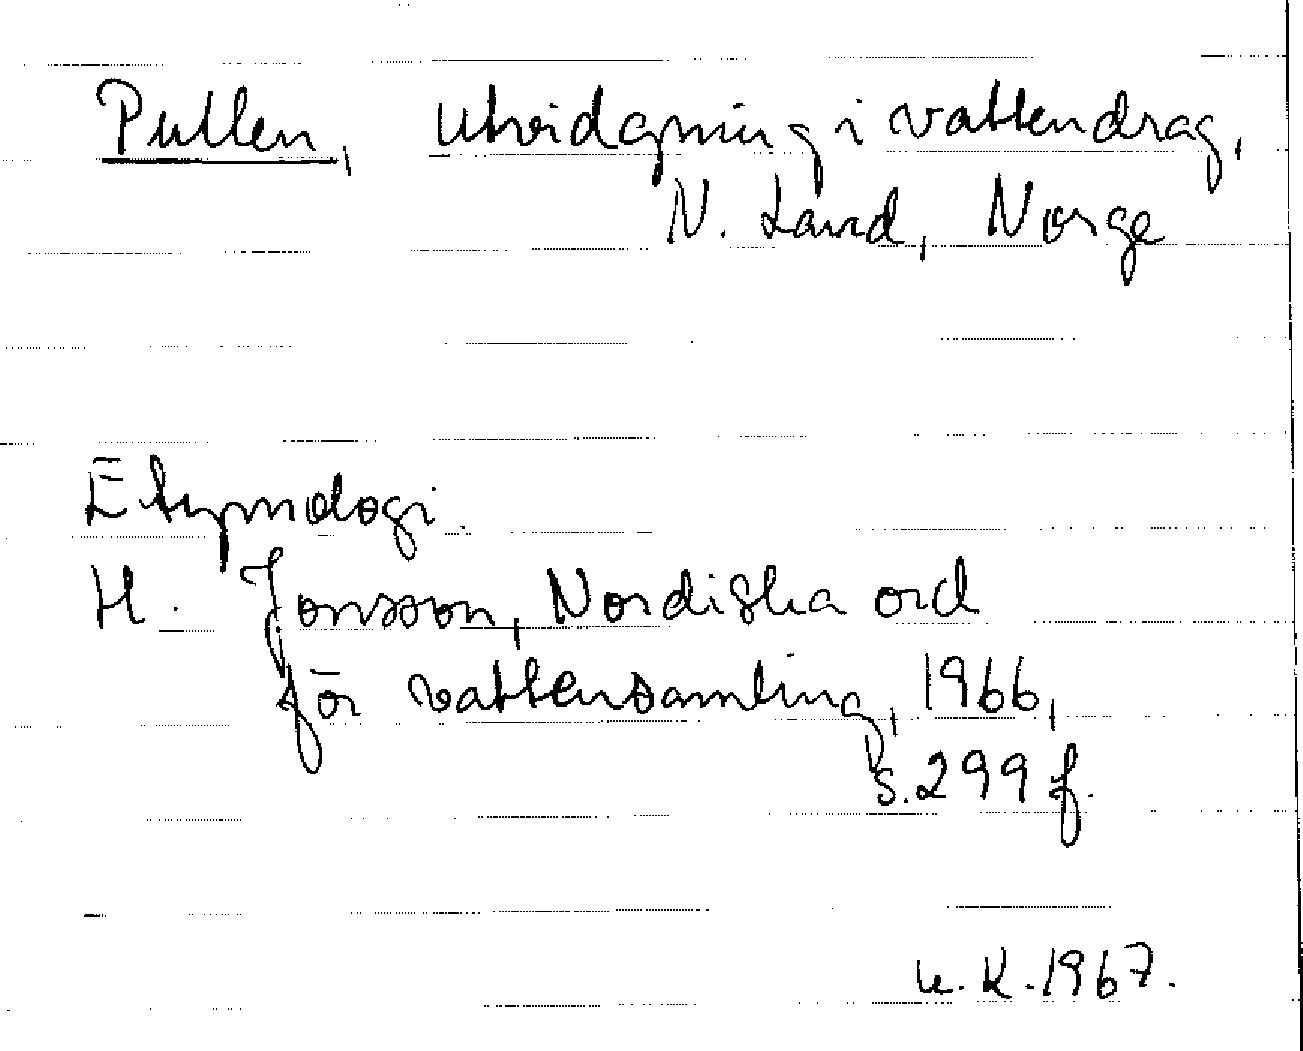 Pullen, utvidgning i vattendrag,
N. Land, Norge
Etymologi.
H. Jonsson, Nordiska ord
för vattensamling, 1966,
s. 299 f.
K. 1967.